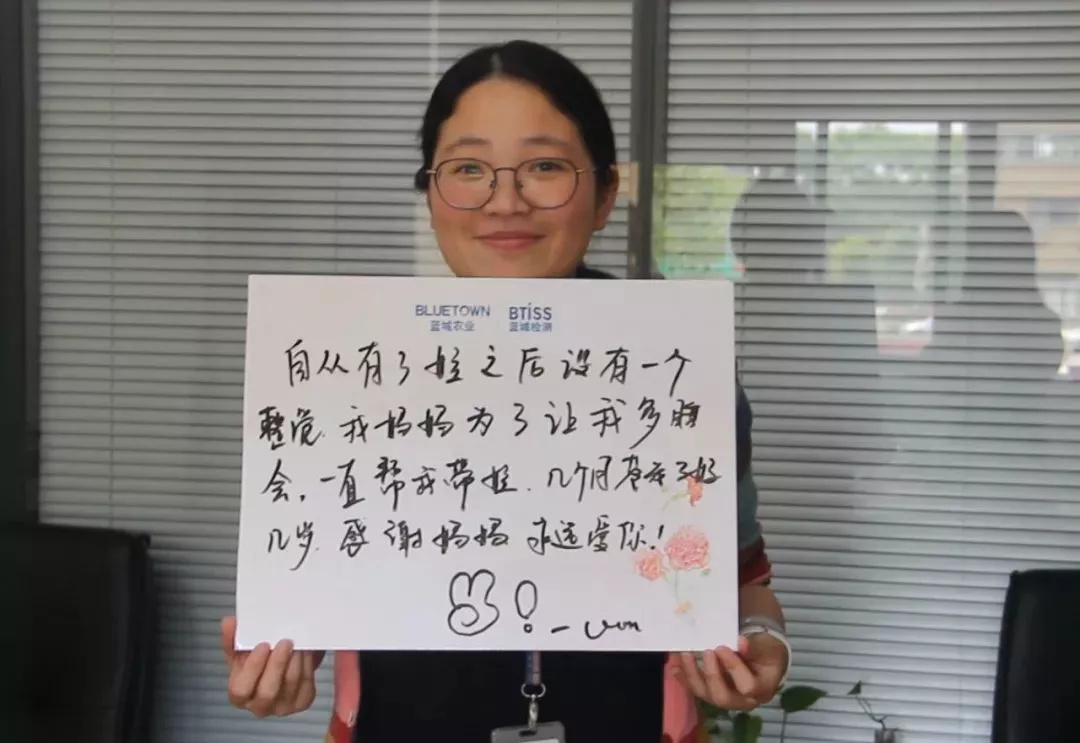 BLUETOWN BTiSS
蓝城农业 蓝城检测
自从有了娃之后没有一个
整觉.我妈妈为了让我多睡
会,一直帮我带娃.几个月苍老了好
几岁.感谢妈妈 永远爱你!